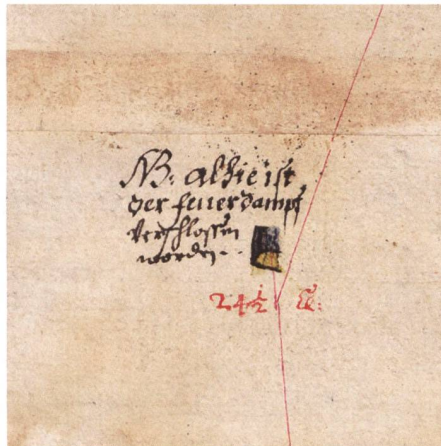 NB: alhie ist
der feuerdampf
verschlossen
worden.
24 1/2